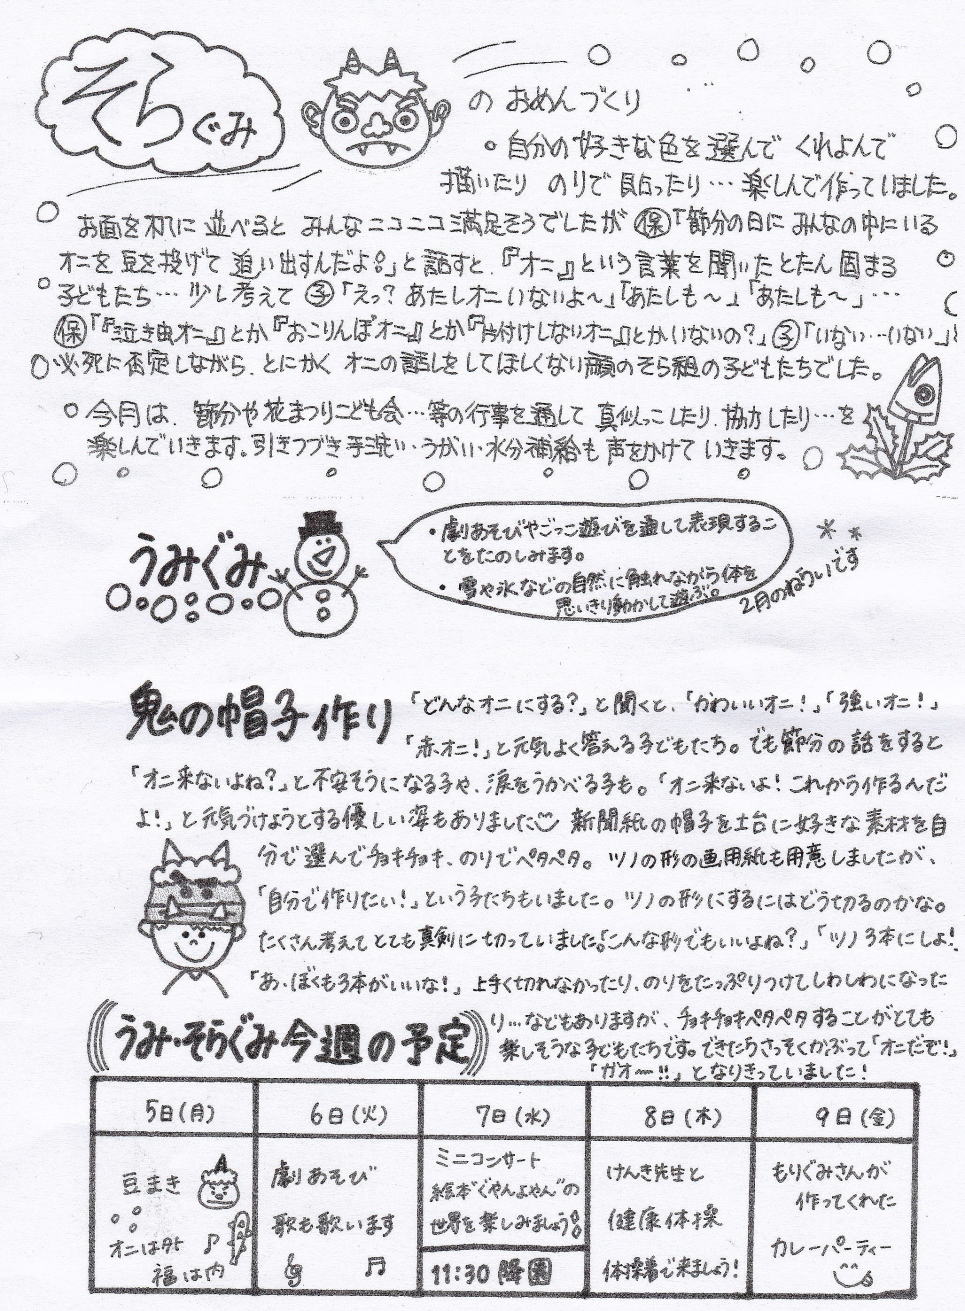 そらぐみ
の おめんづくり
○自分の好きな色を選んで くれよんで
描いたり のりで貼ったり…楽しんで作っていました。
お面を机に並べると みんなニコニコ満足そうでしたが 保「節分の日に みんなの中にいる
オニを 豆を投げて 追い出すんだよ!」と話すと、『オニ』という言葉を聞いたとたん 固まる
子どもたち… 少し考えて 子「えっ?あたしオニいないよ〜」「あたしも〜」「あたしも〜」…
保「『泣き虫オニ』とか『おこりんぼオニ』とか『片付けしないオニ』とかいないの?」子「いない…いない」
必死に否定しながら、とにかく オニの話しをしてほしくない顔のそら組の子どもたちでした。
○今月は、節分や花まつりこども会…等の行事を通して 真似っこしたり、協力したり…を
楽しんでいきます。引きつづき手洗い・うがい・水分補給も声をかけていきます。
うみぐみ
・劇あそびやごっこ遊びを通して表現するこ
とをたのしみます。
・雪や氷などの自然に触れながら体を
思いきり動かして遊ぶ。
2月のねらいです
鬼の帽子作り
「どんなオニにする?」と聞くと、「かわいいオニ!」「強いオニ!」
「赤オニ!」と元気よく答える子どもたち。でも節分の話をすると
「オニ来ないよね?」と不安そうになる子や、涙をうかべる子も。「オニ来ないよ!これから作るんだ
よ!」と元気づけようとする優しい姿もありました 新聞紙の帽子を土台に好きな素材を自
分で選んでチョキチョキ、のりでペタペタ。ツノの形の画用紙も用意しましたが、
「自分で作りたい!」という子たちもいました。ツノの形にするにはどう切るのかな。
たくさん考えてとても真剣に切っていました。「こんな形でもいいよね?」「ツノ3本にしよ!」
「あ、ぼくも3本がいいな!」上手く切れなかったり、のりをたっぷりつけてしわしわになった
り…などもありますが、チョキチョキペタペタすることがとても
楽しそうな子どもたちです。できたらさっそくかぶって「オニだぞ!」
「ガオー!!」となりきっていました!
うみ・そらぐみ今週の予定
5日(月) 6日(火) 7日(水) 8日(木) 9日(金)
豆まき
オニは外
福は内
劇あそび
歌も歌います
ミニコンサート
絵本"ぐやんよやん"の
世界を楽しみましょう!
11:30 降園
けんき先生と
健康体操
体操着で来ましょう!
もりぐみさんが
作ってくれた
カレーパーティー